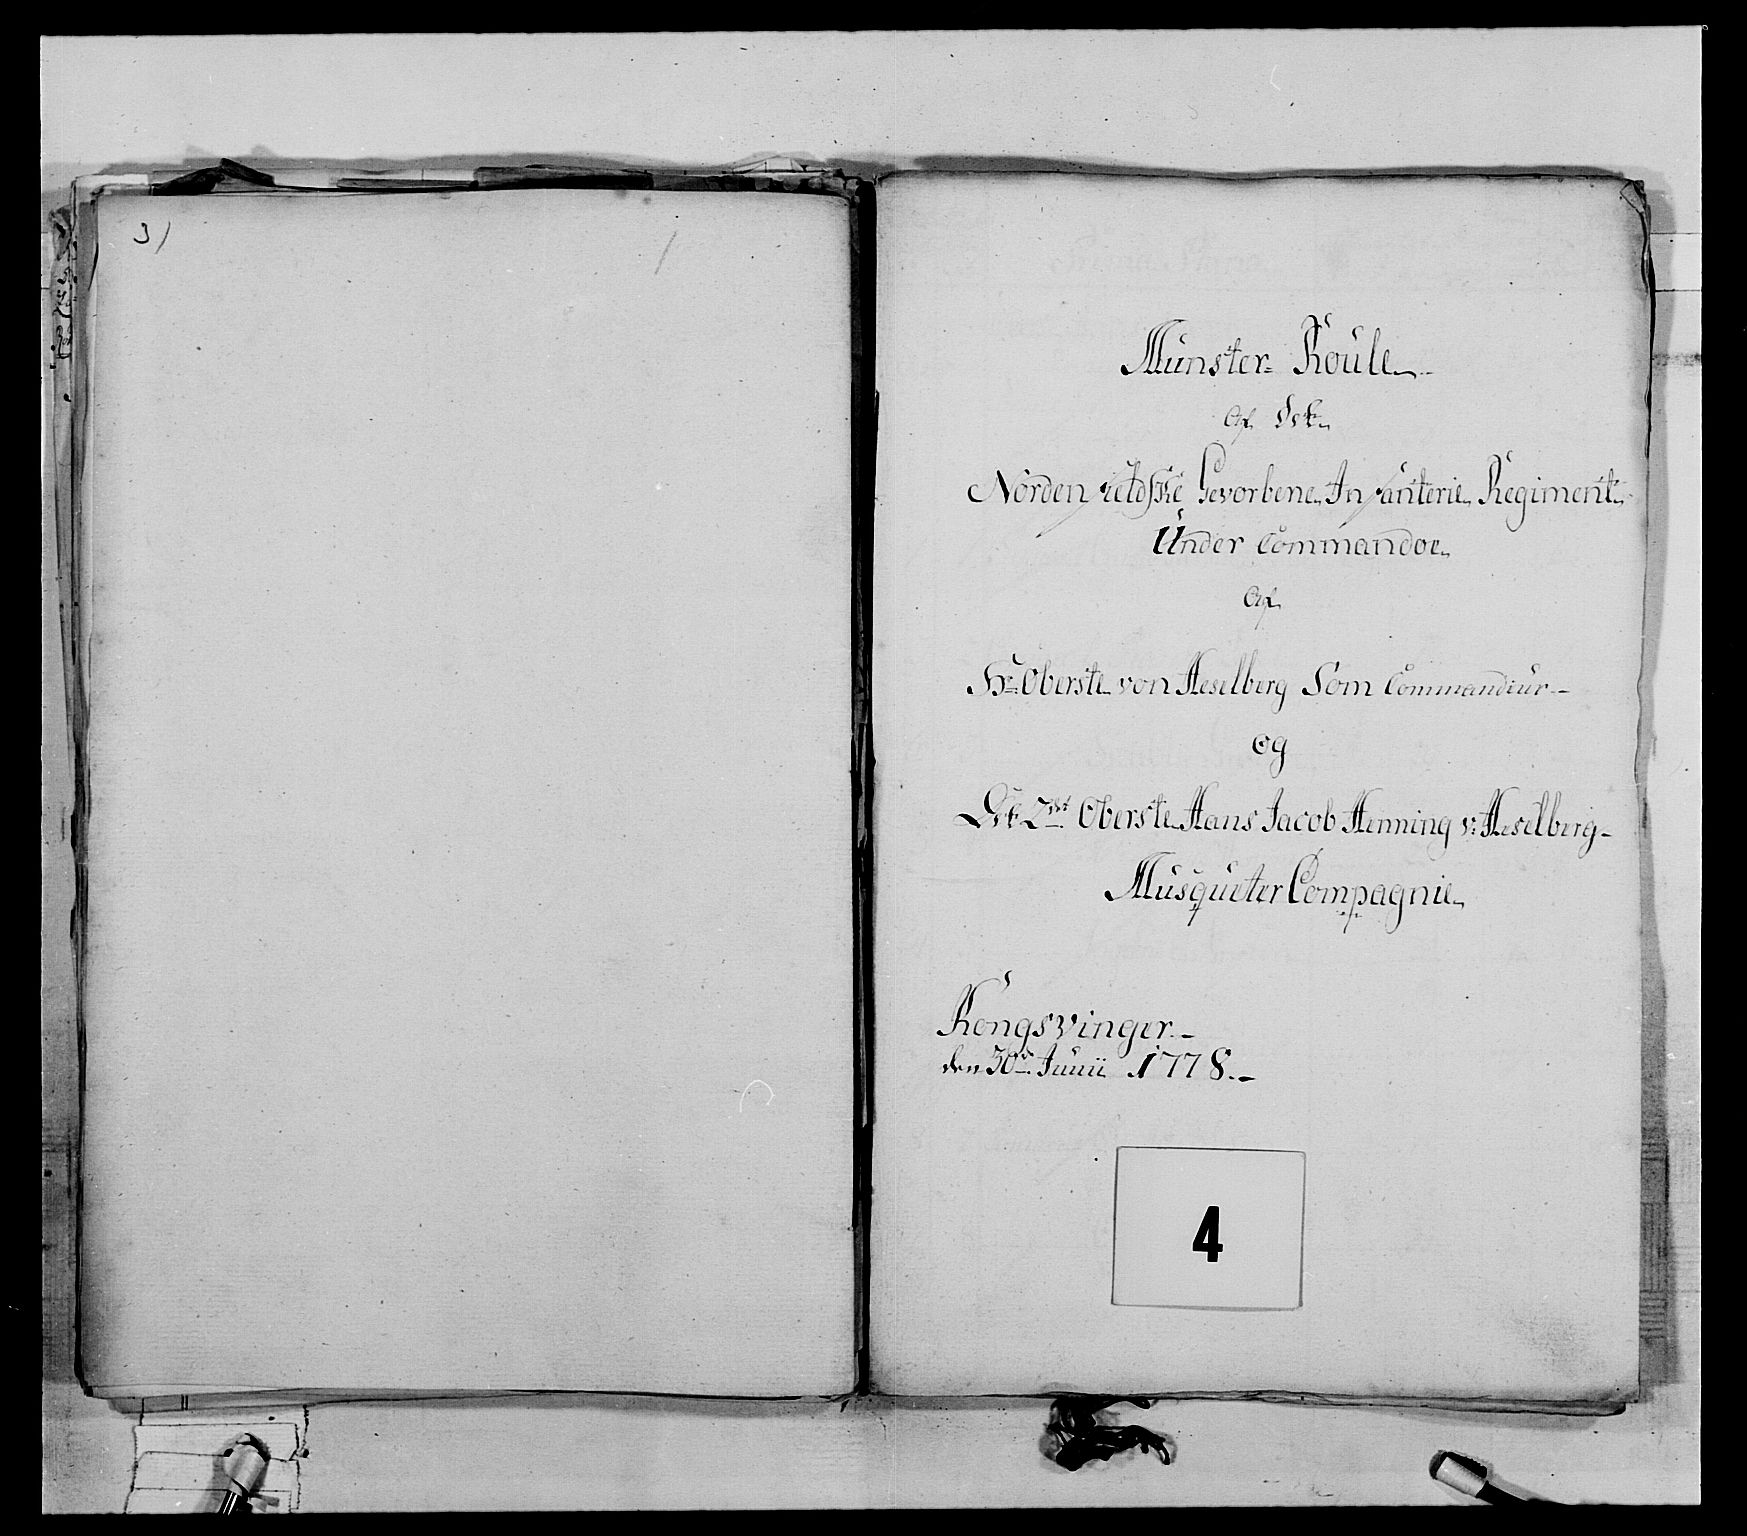 3)
Munster- Roule
Af det
Norden fieldske Gevorbene Infanterie Regiment
Under Commandoe
Af
Hr: Oberste von Heselberg Som Commandeur
og
Det 2det Oberste Hans Jacob Henning v: Heselberg
Musqueter Compagnie
Kongsvinger
den 30te Junii 1778.
4